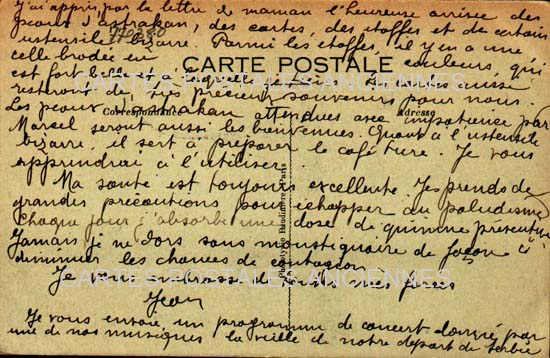 J'ai appris par la lettre de maman l'heureuse arrivée des
peaux d'astrakan, des cartes, des étoffes et de certain
ustensile bizarre. Parmi les étoffes, il y en a une
770380
celle brodée en couleurs, qui
CARTE POSTALE
est fort belle et à laquelle je tiens. Les autres aussi
CARTES POSTALES ANCIENNES
resteront de très précieux souvenirs pour nous.
Les peaux d'astrakan attendues avec impatience par
Correspondance
Adresse
Marcel seront aussi les bienvenues. Quant à l'ustensile
bizarre, il sert à préparer le café turc. Je vous
apprendrai à l'utiliser.
Ma santé est toujours excellente. Je prends de
grandes précautions pour échapper au paludisme
Chaque jour j'absorbe une dose de quinine préventive
Jamais je ne dors sans moustiquaire de façon à
diminuer les chances de contagion
CARTES POSTALES ANCIENNES
Je vous embrasse de toutes mes forces
Jean
Phototypie Baudinière, Paris
Je vous envoie un programme de concert donné par
une de nos musiques la veille de notre départ de Serbie